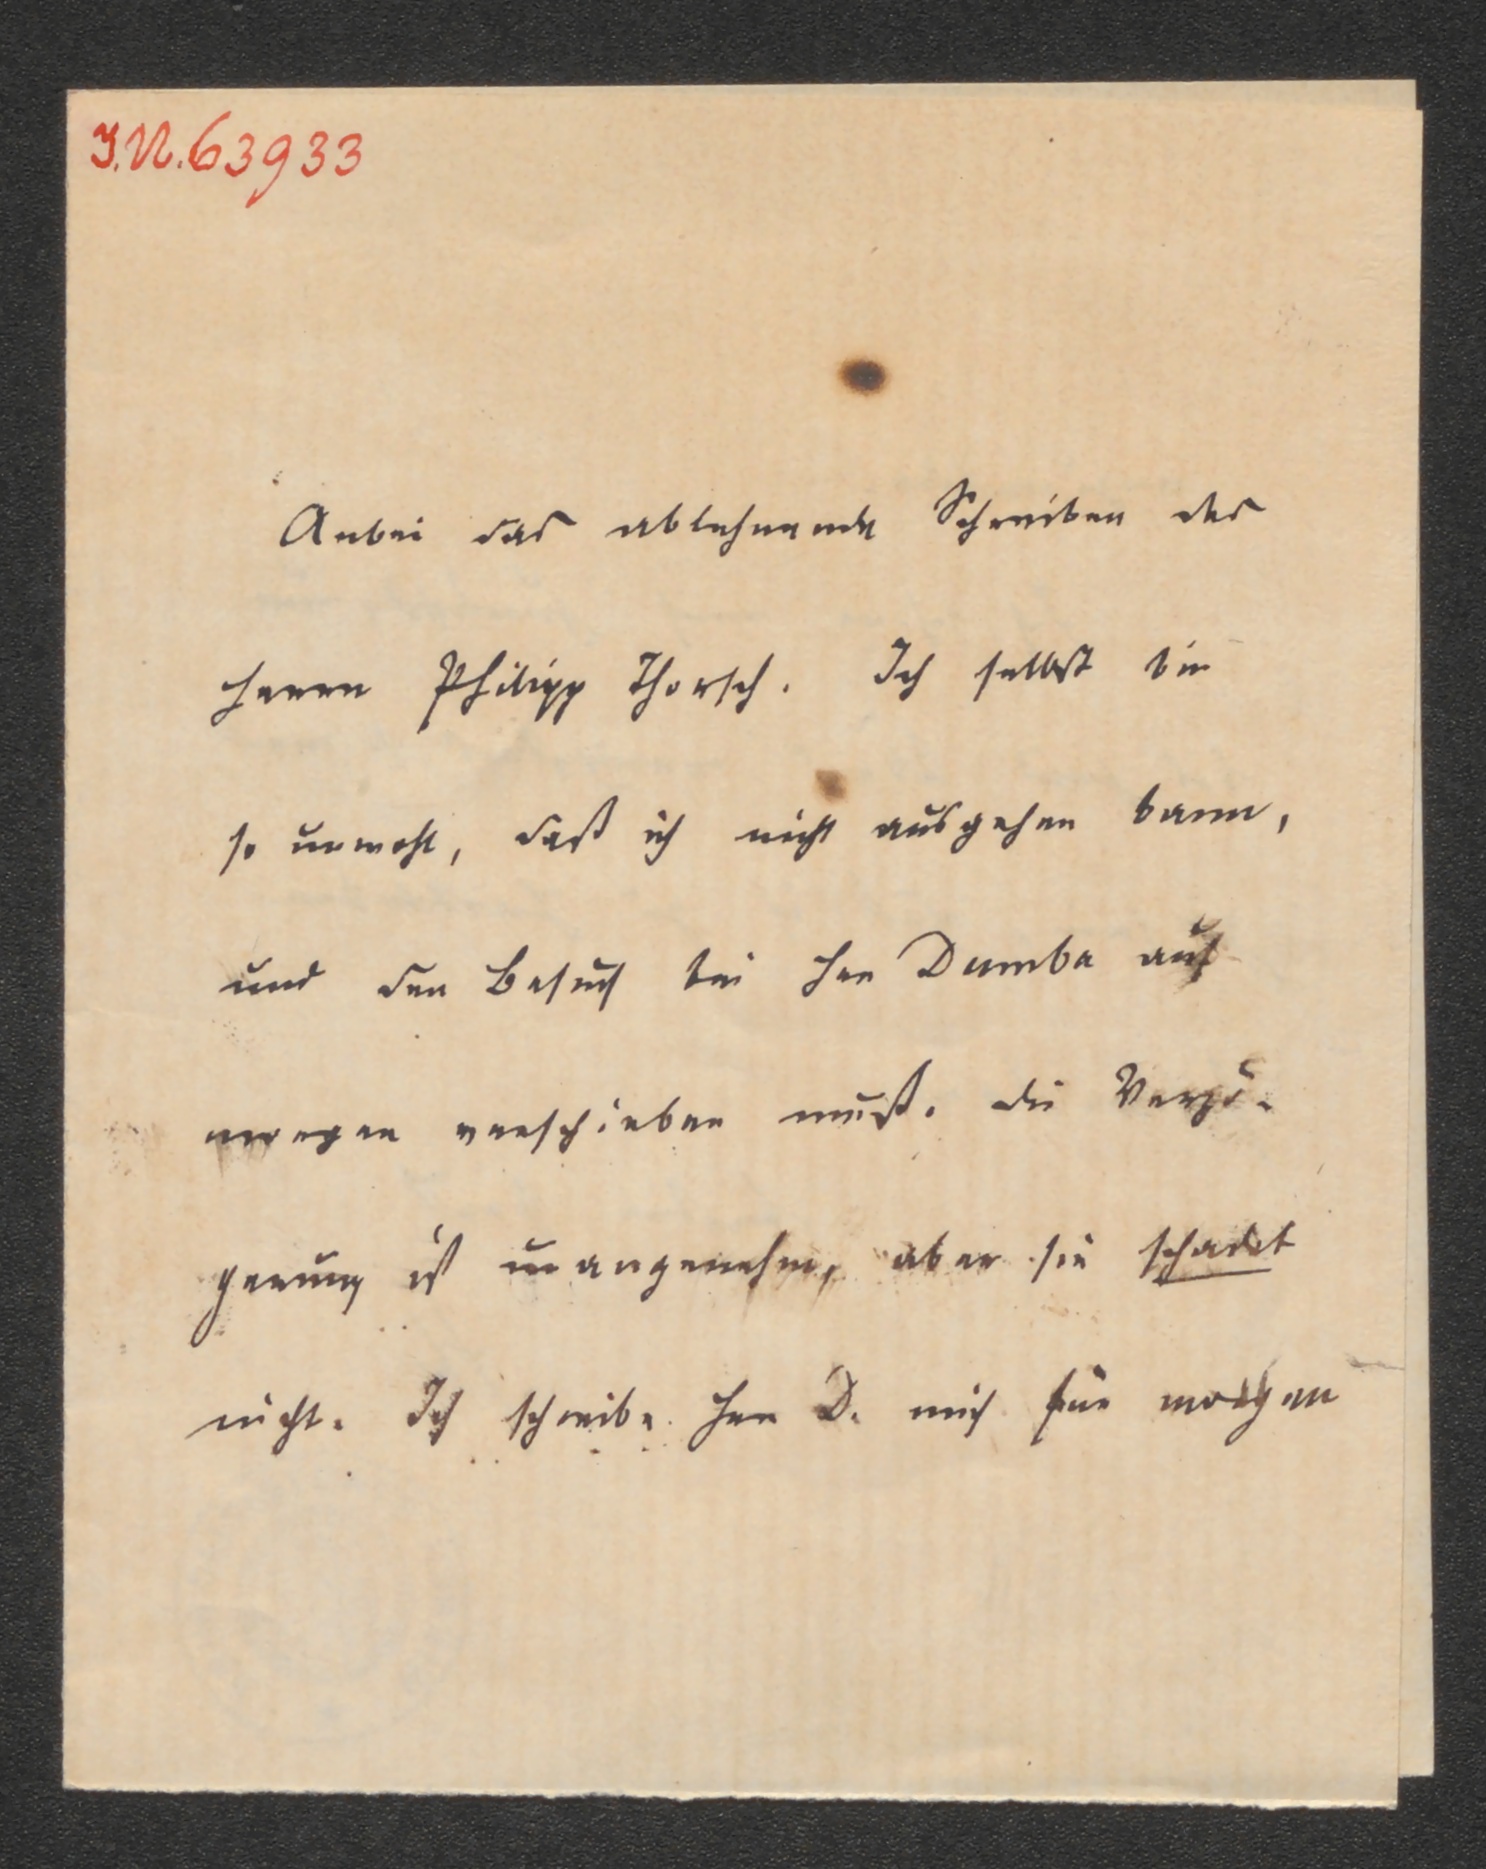 I.N. 63933
Anbei das ablehnende Schreiben des
Herrn Philipp Thorsch. Ich selbst bin
so unwohl, daß ich nicht ausgehen kann,
und den Besuch bei Hrn Dumba auf
morgen verschieben muß. Die Verzö-
gerung ist unangenehm, aber sie schadet
nicht. Ich schreibe Hrn D. mich für morgen